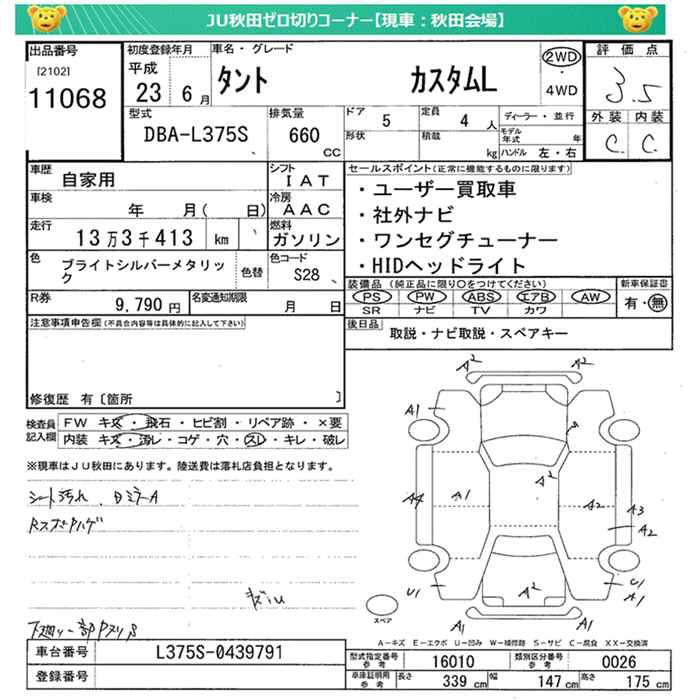 JU秋田ゼロ切りコーナー【現車：秋田会場】
出品番号 初度登録年月 車名・グレード 評価点
[2102] 平成 タント カスタムL 2WD・4WD 3.5
11068 23 6月
外装 内装
C. C.
型式 排気量 ドア 定員 ディーラー・並行
DBA-L375S 660 CC 5 4人 モデル年式 年
形状 積載 kg ハンドル 左・右
車歴 自家用 シフト IAT セールスポイント(正常に機能するものに限ります)
車検 年 月( 日) 冷房 AAC ・ユーザー買取車
・社外ナビ
走行 13万3千413 km 燃料 ガソリン ・ワンセグチューナー
・HIDヘッドライト
色 ブライトシルバーメタリック 色替 色コード S28 装備品 (純正品に限り○をつけてください) 新車保証書
PS PW ABS エアB AW 有・無
SR ナビ TV カワ
R券 9,790円 名変通知期限 月 日
注意事項申告欄(不具合内容等は具体的に記入して下さい) 後日品 取説・ナビ取説・スペアキー
修復歴 有〔箇所 〕
検査員記入欄 FW キズ・飛石・ヒビ割・リペア跡・×要
内装 キズ・汚レ・コゲ・穴・スレ・キレ・破レ
※現車はJU秋田にあります。陸送費は落札店負担となります。
シート汚れ
A2 A2
A1
A2
A4 A1 A2 A3
A2
U1 A2 U1
A1
A1 A1
スペア
A-キズ E-エクボ U-凹み W-補修跡 S-サビ C-腐食 XX-交換済
車台番号 L375S-0439791 型式指定番号 参考 16010 類別区分番号 参考 0026
登録番号 車庫証明用 参考 長さ 339 cm 幅 147 cm 高さ 175 cm